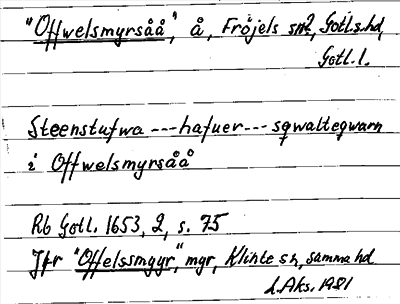 "Offwelsmyrsåå", å, Fröjels sn, Gotl. s. hd,
Gotl. l.
Steenstufwa --- hafuer --- sqwaltegwarn
i Offwelsmyrsåå
Rb Gotl. 1653, 2, s. 75
Jfr "Offelssmyyr", myr, Klinte sn, samma hd
L. Aks. 1981